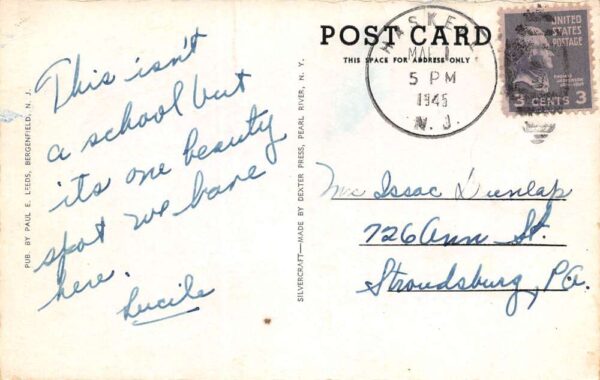 This isn't
a school but
its one beauty
spot we have
here.
Lucile
PUB. BY PAUL E. LEEDS, BERGENFIELD, N. J.
SILVERCRAFT—MADE BY DEXTER PRESS, PEARL RIVER, N. Y.
POST CARD
THIS SPACE FOR ADDRESS ONLY
HASKELL
5 PM
1945
N. J.
UNITED
STATES
POSTAGE
THOMAS
JEFFERSON
3 CENTS 3
Issac Dunlap
726 Ann St.
Stroudsburg, Pa.